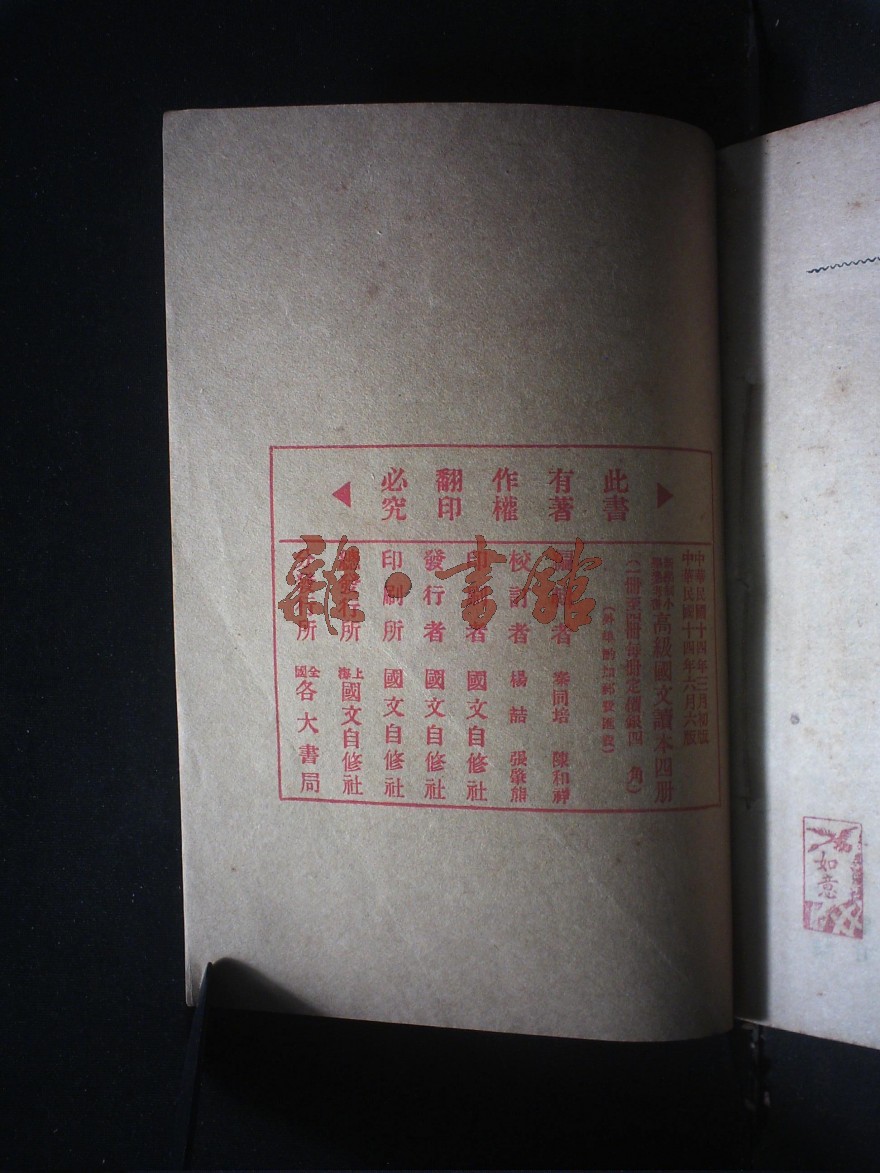 此書有著作權翻印必究
中華民國十四年三月初版
中華民國十四年六月六版
高級國文讀本四册
(一册至四册每册定價銀四角)
(外埠酌加郵費匯費)
編輯者 秦同培 陳和祥
校訂者 楊喆 張肇熊
印刷者 國文自修社
發行者 國文自修社
印刷所 國文自修社
總發行所 上海國文自修社
所 全國各大書局
雜·書館
如意